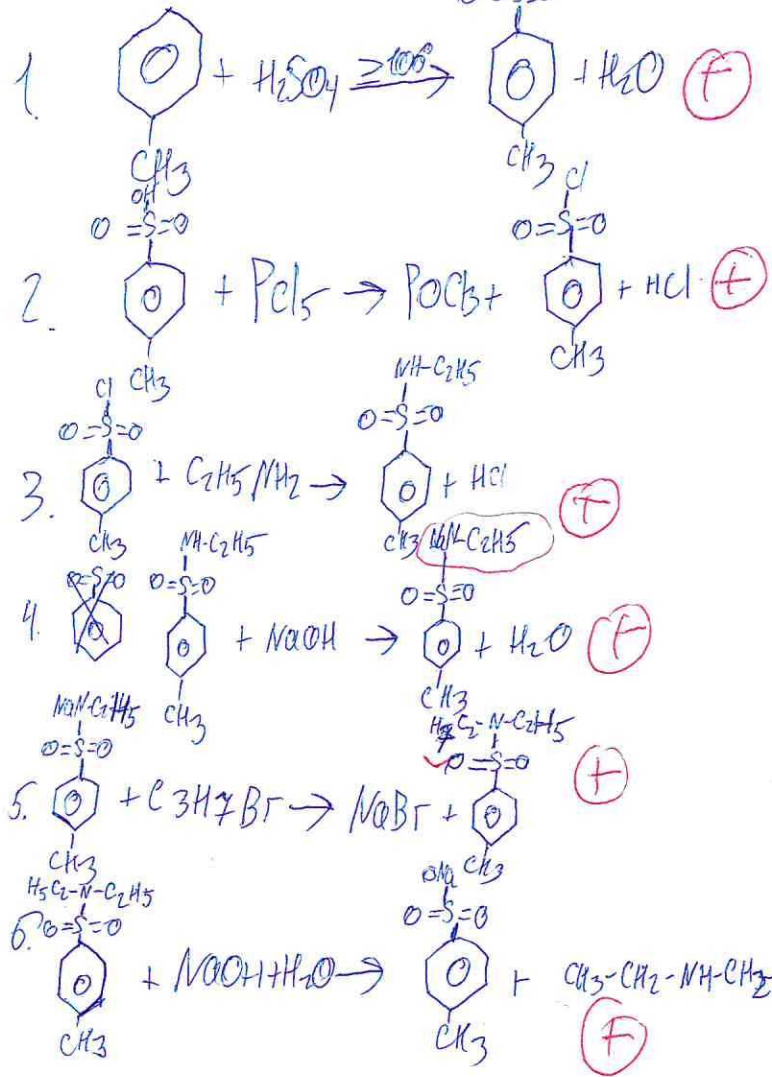 1. + H2SO4 ≥100° → + H2O +
CH3 CH3
OH Cl
O=S=O O=S=O
2. + PCl5 → POCl3 + + HCl +
CH3 CH3
Cl NH-C2H5
O=S=O O=S=O
3. + C2H5NH2 → + HCl +
CH3 CH3
NH-C2H5 NaN-C2H5
O=S=O O=S=O O=S=O
4. + NaOH → + H2O +
CH3 CH3
NaN-C2H5 C2-N-C2H5
O=S=O O=S=O
5. + C3H7Br → NaBr + +
CH3 CH3
H5C2-N-C2H5 ONa
6. O=S=O O=S=O
+ NaOH+H2O → + CH3-CH2-NH-CH2
CH3 CH3 +